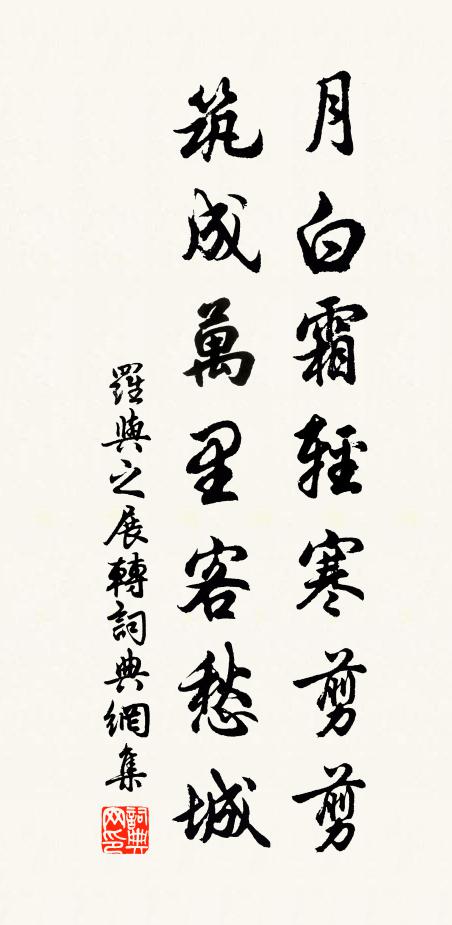 月白霜輕寒剪剪
筑成萬里客愁城
羅與之展轉詞典網集
詞典网印